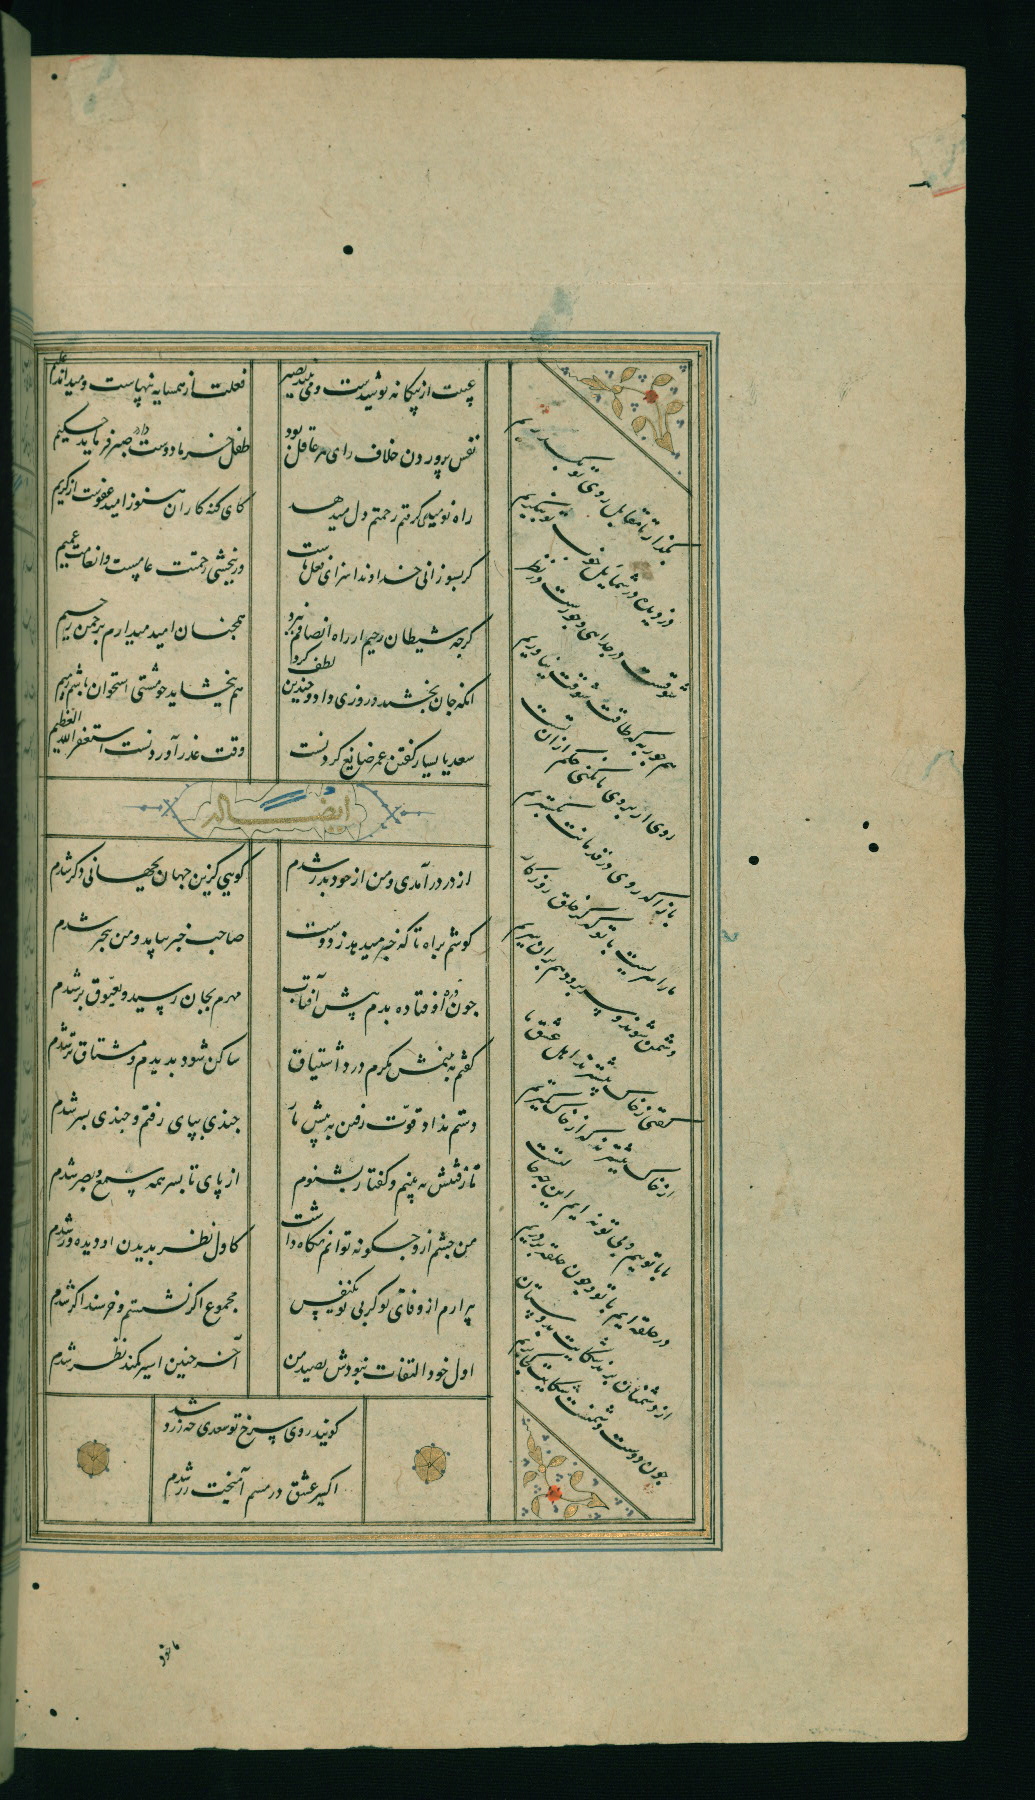 عیبت از بیکانه پوشیدست و می بیند بصیر
فعلت از همسایه پنهانست و میداند علیم
نفس پروردن خلاف رای هر عاقل بود
طفل خرما دوست دارد صبر فرماید حکیم
راه نومیدی کرفتم رحمتم دل میدهد
کای کنه کاران هنوز امید عفوست از کریم
کر بسوزانی خداوندا سزای فعل ماست
ور ببخشی رحمتت عامست و انعامت عمیم
کرچه شیطان رجیم از راه انصافم ببرد
همچنان امید میدارم برحمن رحیم
آنکه جان بخشید و روزی داد و چندین لطف کرد
هم ببخشاید چو مشتی استخوان باشم رمیم
سعدیا بسیار کفتن عمر ضایع کردنست
وقت عذر آوردنست استغفر الله العظیم
ایضا له
از در درآمدی و من از خود بدر شدم
کویی کزین جهان بجهانی دکر شدم
کوشم براه تا که خبر میدهد ز دوست
صاحب خبر بیامد و من بیخبر شدم
چون ذره اوفتاده بدم پیش آفتاب
مهرم بجان رسید و بعیوق بر شدم
کفتم به بینمش مکرم درد اشتیاق
ساکن شود بدیدم و مشتاق تر شدم
دستم نداد قوت رفتن به پیش یار
چندی بپای رفتم و چندی بسر شدم
تا رفتنش به بینم و کفتار بشنوم
از پای تا بسر همه سمع و بصر شدم
من چشم ازو چکونه توانم نکاه داشت
کاول نظر بدیدن او دیده ور شدم
بیزارم از وفای تو کر بی تو یکنفس
مجموع اکر نشستم و خرسند اکر شدم
اول خود التفات نبودش بصید من
آخر چنین اسیر کمند نظر شدم
کویند روی سرخ تو سعدی چه زرد شد
اکسیر عشق در مسم آمیخت زر شدم
بکذار تا مقابل روی تو بکذریم
دزدیده در شمایل خوب تو بنکریم
شوقست در جدایی و جورست در نظر
هم جور به که طاقت شوقت نیاوریم
روی ار بروی ما نکنی حکم از آن تست
باز آ که روی در قدمانت بکستریم
ما را سریست با تو که کر خلق روزکار
دشمن شوند و سر برود هم بران سریم
کفتی ز خاک بیشترند اهل عشق ما
از خاک بیشتر نه که از خاک کمتریم
ما با توییم و بی تو نه ایم این چه حالتست
در حلقه ایم با تو و چون حلقه بر دریم
از دشمنان برند شکایت بدوستان
چون دوست دشمنست شکایت کجا بریم
ما خود